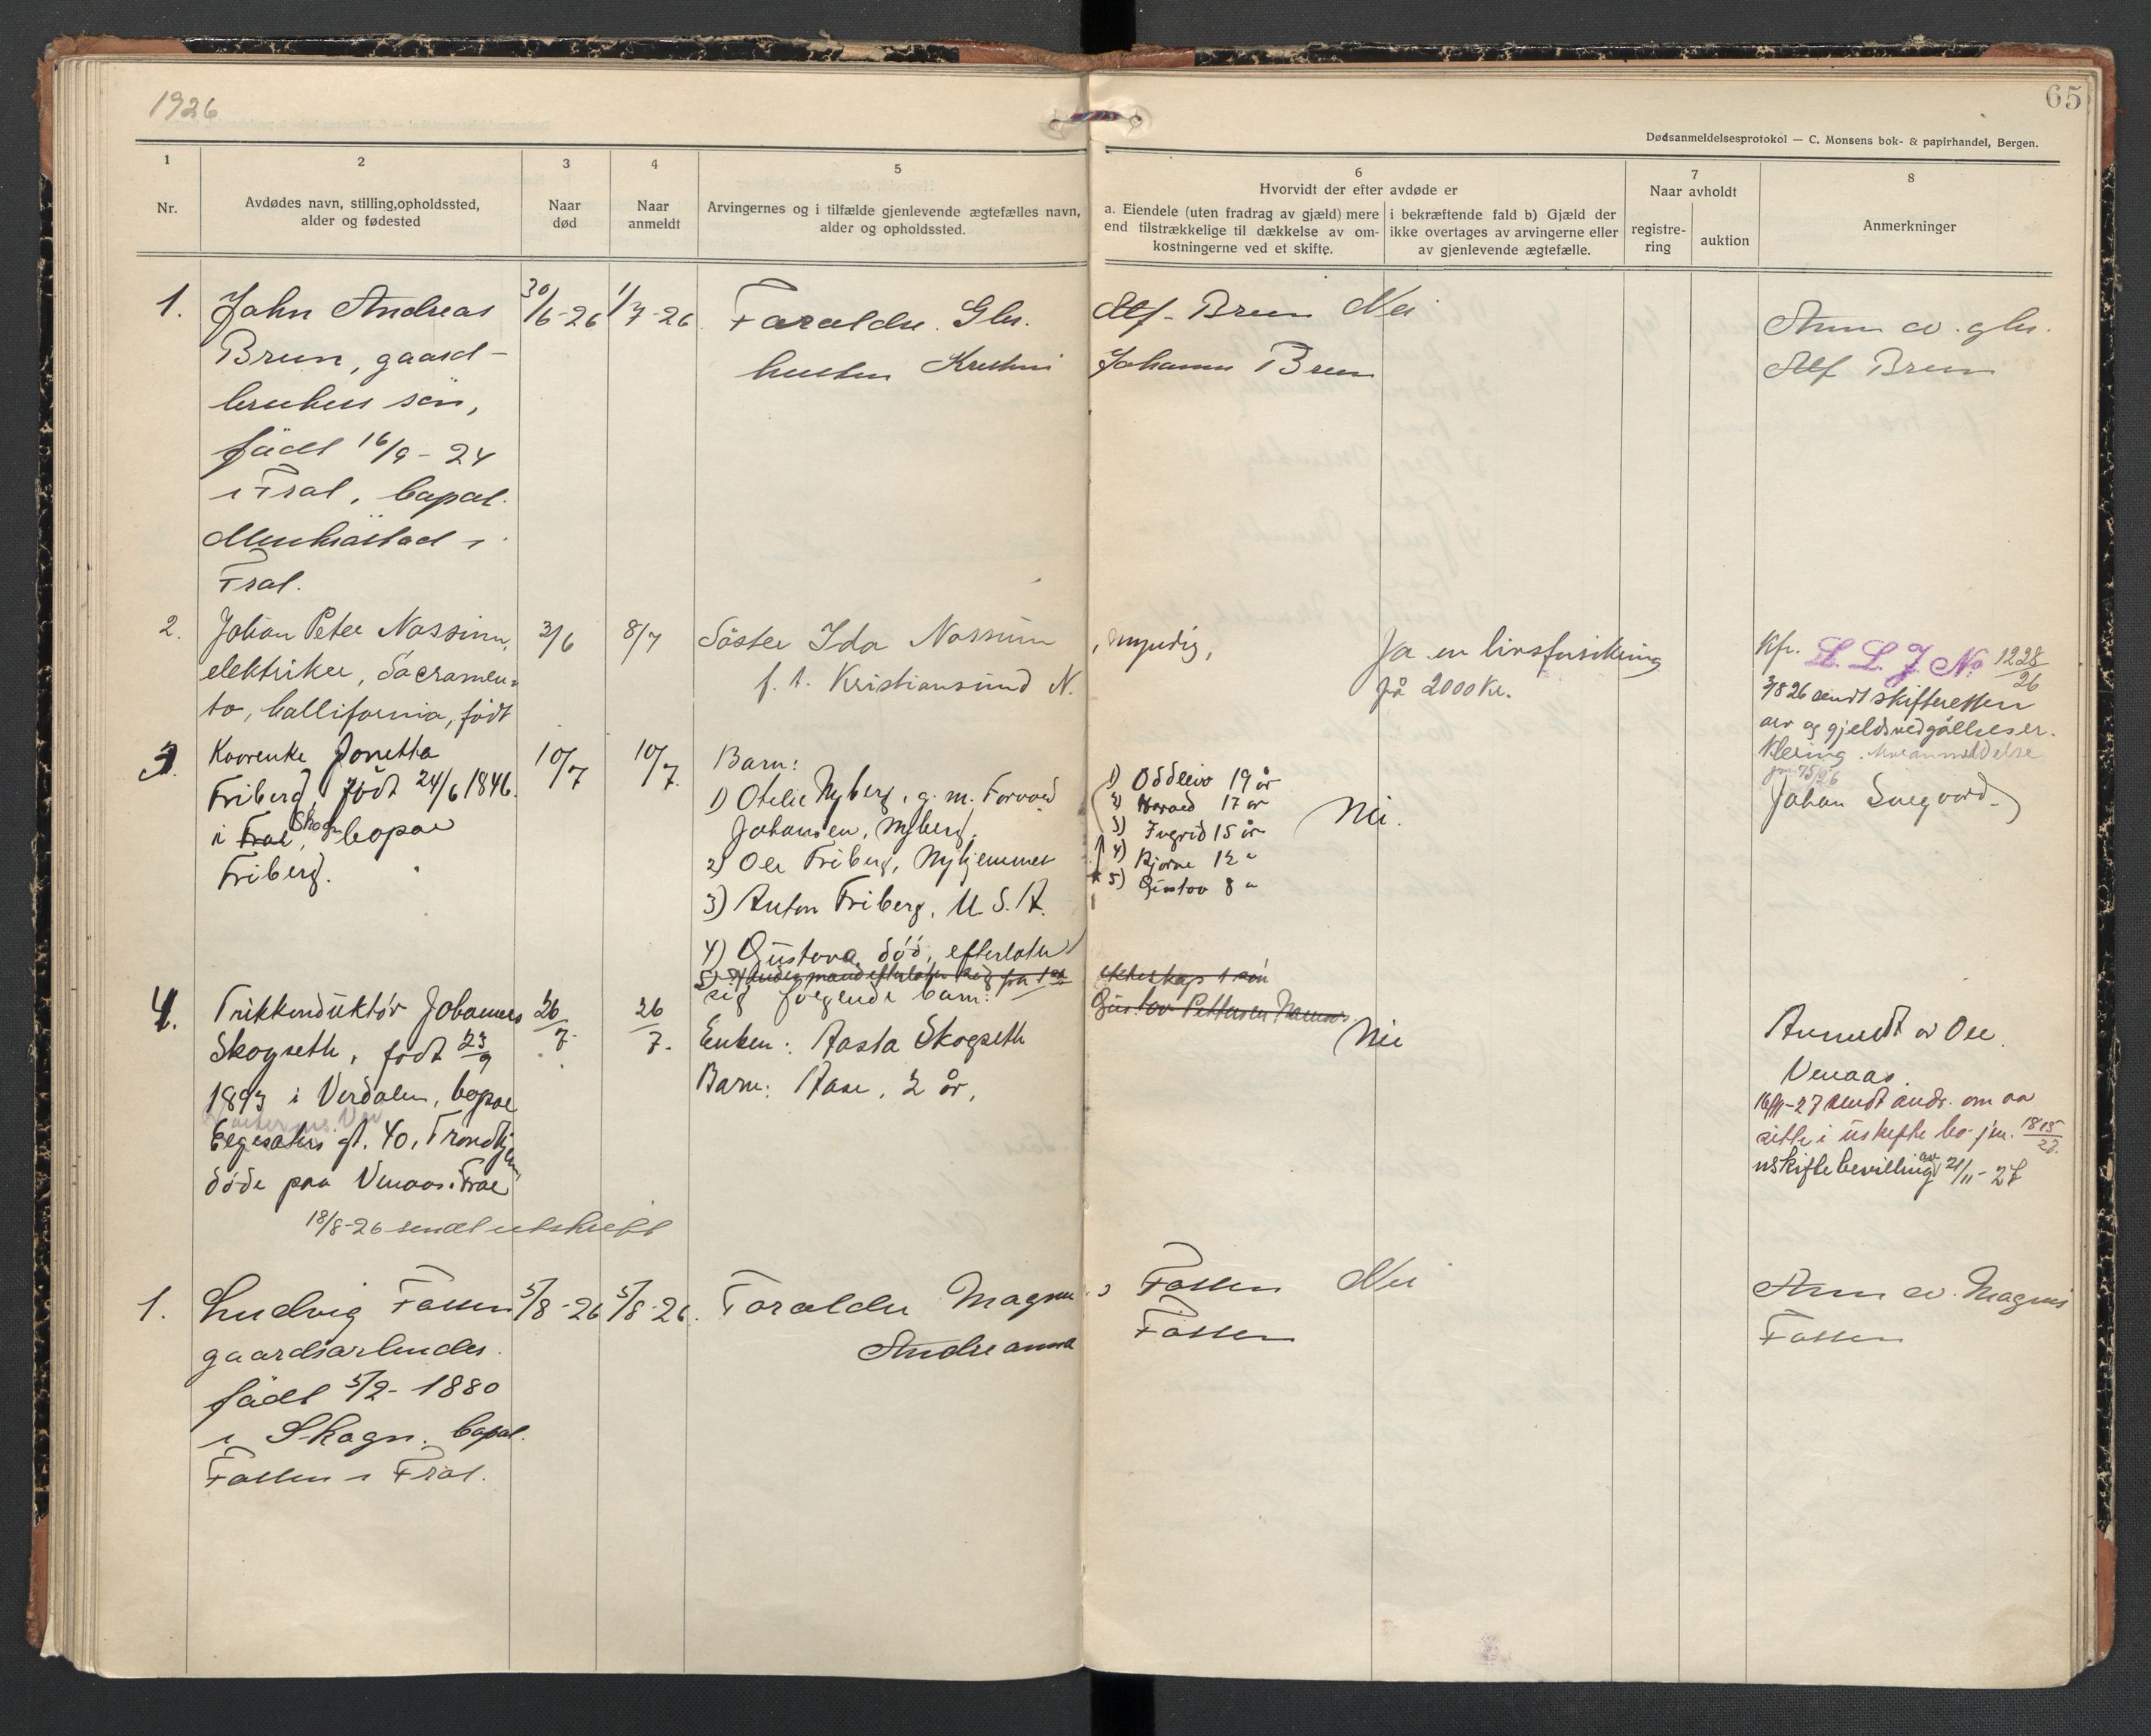 1926
65
Dødsanmeldelsesprotokol — C. Monsens bok- & papirhandel, Bergen.
1
Nr.
2
Avdødes navn, stilling, opholdssted,
alder og fødested
3
Naar
død
4
Naar
anmeldt
5
Arvingernes og i tilfælde gjenlevende ægtefælles navn,
alder og opholdssted.
6
Hvorvidt der efter avdøde er
a. Eiendele (uten fradrag av gjæld) mere
end tilstrækkelige til dækkelse av om-
kostningerne ved et skifte.
i bekræftende fald b) Gjæld der
ikke overtages av arvingerne eller
av gjenlevende ægtefælle.
7
Naar avholdt
registre-
ring
auktion
8
Anmerkninger
1.
John Andreas
Brun, gaard-
brukers søn,
født 16/9 - 24
i Frol, bopæl
i
Frol.
30/6-26
1/7-26.
Foreldre. Gbr.
Alf. Brun
Johanne Brun
Nei
Anm av. gbr.
Alf Brun
2.
Johan Peter Nossum,
elektriker, Sacramen-
to, Callifornia, født
3/6
8/7
Söster Ida Nossum
, myndig,
f. t. Kristiansund N.
Ja en livsforsikring
på 2000 Kr.
Kfr. L. L. J. No 1228/26
3/8 26 sendt skifteretten
arv og gjeldsvedgåelseser-
klering.
3.
Kaarenke Jonetta
Friberg, född 24/6 1846.
i Frol, Skogn bopæl
Friberg.
10/7
10/7.
Barn:
1) Otelie Nyberg, g. m. Torvald
Johansen, Nyberg.
2) Ole Friberg, Nyhjemmet
3) Anton Friberg, U. S. A.
4) Gustava, död, efterlater
sig følgende barn:
1) Oddleiv 19 år
2) Harald 17 år
3) Ingrid 15 år
4) Bjarne 12 "
5) Gustav 8 "
Nei.
Johan
4.
Trikkonduktør Johannes
Skogseth, født 23/9
1893 i Verdalen, bopæl
gt. 40, Trondhjem
døde paa Venaas i Frol
18/8-26 sendt utskrift
26/7
26/7.
Enken: Aasta Skogseth
Barn: Aase, 2 år,
ekteskap 1 søn
Gustav Pettersen
Nei
Anmeldt av Ole
Venaas.
16/11-27 sendt andr. om aa
sitte i uskifte bo jnr. 1815/27.
uskiftebevilling av 21/11-27
1.
Ludvig Fossen
gaardsarbeider.
født 5/2 - 1880
i Skogn. bopæl.
Fossen i Frol.
5/8-26
5/8-26.
Foreldre Magnus
Fossen
Andreanna
Fossen
Nei
Anm av. Magnus
Fossen